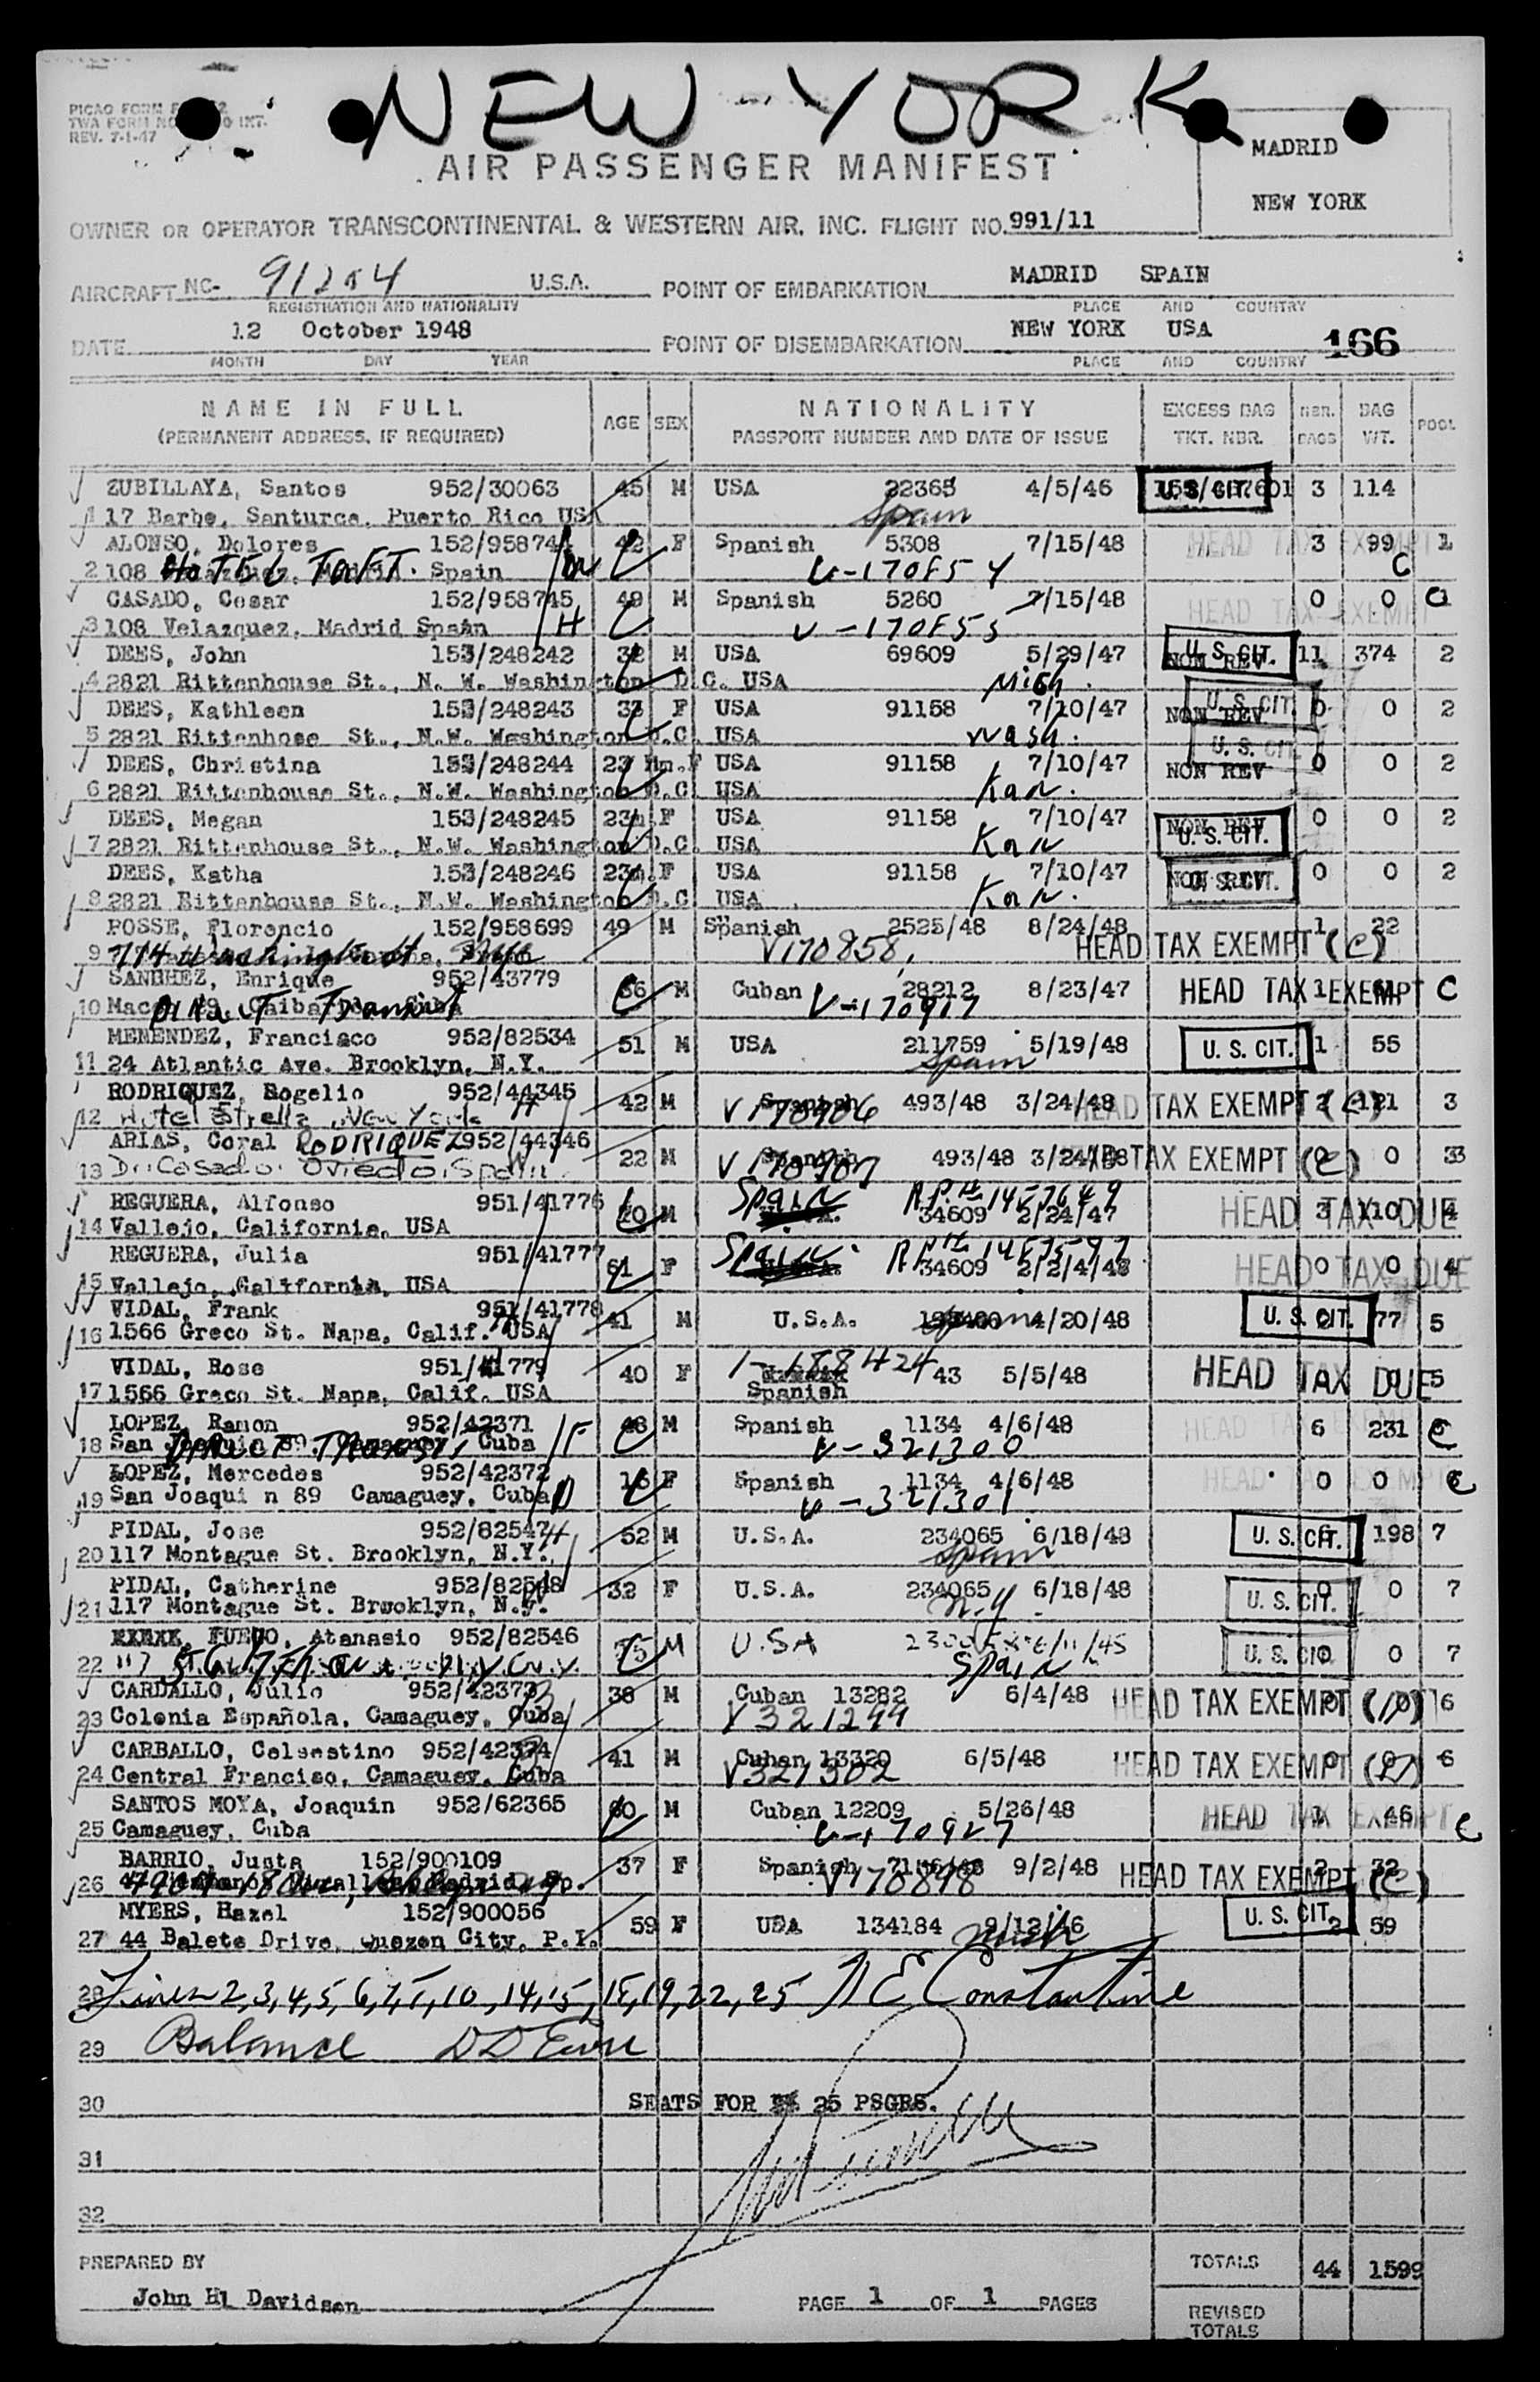 NEW YORK
PICAO FORM
TWA FORM NO INT.
REV. 7-1-47
AIR PASSENGER MANIFEST
MADRID
NEW YORK
OWNER OR OPERATOR TRANSCONTINENTAL & WESTERN AIR. INC. FLIGHT NO. 991/11
AIRCRAFT NC- 91204 U.S.A. POINT OF EMBARKATION MADRID SPAIN
REGISTRATION AND NATIONALITY PLACE AND COUNTRY
DATE 12 October 1948 POINT OF DISEMBARKATION NEW YORK USA 166
MONTH DAY YEAR PLACE AND COUNTRY
NAME IN FULL AGE SEX NATIONALITY EXCESS BAG NBR. BAG POOL
(PERMANENT ADDRESS, IF REQUIRED) PASSPORT NUMBER AND DATE OF ISSUE TKT. NBR. BAGS WT.
ZUBILLAYA, Santos 952/30063 45 M USA 22365 4/5/46 U.S. CIT. 3 114
1 17 Barbe, Santurce, Puerto Rico USA Spain
ALONSO, Dolores 152/958744 42 F Spanish 5308 7/15/48 HEAD TAX EXEMPT 3 99 1
2 108 HOTEL TAFT. Spain V-170854 C
CASADO, Cesar 152/958745 49 M Spanish 5260 7/15/48 HEAD TAX EXEMPT 0 0 C
3 108 Velazquez, Madrid Spain H V-170855
DEES, John 153/248242 32 M USA 69609 5/29/47 U. S. CIT. NON REV. 11 374 2
4 2821 Rittenhouse St., N. W. Washington D C. USA Mich.
DEES, Kathleen 153/248243 33 F USA 91158 7/10/47 U. S. CIT. NON REV 0 0 2
5 2821 Rittenhose St., N.W. Washington D.C. USA Wash.
DEES, Christina 153/248244 23 Hm.F USA 91158 7/10/47 U. S. CIT. NON REV 0 0 2
6 2821 Rittenhouse St., N.W. Washington D.C. USA Kan.
DEES, Megan 153/248245 23m F USA 91158 7/10/47 NON REV U. S. CIT. 0 0 2
7 2821 Rittenhouse St., N.W. Washington D.C. USA Kan
DEES, Katha 153/248246 23m F USA 91158 7/10/47 NON REV U. S. CIT. 0 0 2
8 2821 Rittenhouse St., N.W. Washington D.C. USA Kan.
POSSE, Florencio 152/958699 49 M Spanish 2525/48 8/24/48 1 22
9 V170858 HEAD TAX EXEMPT (C)
SANCHEZ, Enrique 952/43779 36 M Cuban 28212 8/23/47 HEAD TAX EXEMPT 1 C
10 Transit Cuba V-170917
MENENDEZ, Francisco 952/82534 51 M USA 211759 5/19/48 U. S. CIT. 1 55
11 24 Atlantic Ave. Brooklyn, N.Y. Spain
RODRIQUEZ, Rogelio 952/44345 42 M Spanish 493/48 3/24/48 HEAD TAX EXEMPT (C) 2 121 3
12 Hotel Estrella, New York H V170906
ARIAS, Coral RODRIQUEZ 952/44346 22 M Spanish 493/48 3/24/48 HEAD TAX EXEMPT (C) 0 0 3
13 Dr. Casado. Oviedo, Spain V170907
REGUERA, Alfonso 951/41776 M Spain 34609 2/24/47 HEAD TAX DUE 3 110 4
14 Vallejo, California, USA
REGUERA, Julia 951/41777 61 F Spain 34609 2/2/4/48 HEAD TAX DUE 0 0 4
15 Vallejo, California, USA
VIDAL, Frank 951/41778 41 M U.S.A. 4/20/48 U. S. CIT. 77 5
16 1566 Greco St. Napa, Calif. USA
VIDAL, Rose 951/41779 40 F I-188424 43 5/5/48 HEAD TAX DUE 0 0 5
17 1566 Greco St. Napa, Calif. USA Spanish
LOPEZ, Ramon 952/42371 48 M Spanish 1134 4/6/48 HEAD TAX EXEMPT 6 231 C
18 San Joaquin 89 Camaguey, Cuba F V-321300
LOPEZ, Mercedes 952/42372 16 F Spanish 1134 4/6/48 HEAD TAX EXEMPT 0 0 C
19 San Joaqui n 89 Camaguey, Cuba V-321301
PIDAL, Jose 952/82547 52 M U.S.A. 234065 6/18/48 U. S. CIT. 198 7
20 117 Montague St. Brooklyn, N.Y. Spain
PIDAL, Catherine 952/82548 32 F U.S.A. 234065 6/18/48 U. S. CIT. 0 0 7
21 117 Montague St. Brwoklyn, N.Y. N.Y.
FUEYO, Atanasio 952/82546 M U.S.A U. S. CIT. 0 0 7
22 117 Spain
CARDALLO, Julio 952/42373 38 M Cuban 13282 6/4/48 HEAD TAX EXEMPT 0 0 6
23 Colonia Española, Camaguey, Cuba V321299
CARBALLO, Celsestino 952/42374 41 M Cuban 13320 6/5/48 HEAD TAX EXEMPT 0 0 6
24 Central Franciso, Camaguey, Cuba V321302
SANTOS MOYA, Joaquin 952/62365 60 M Cuban 12209 5/26/48 HEAD TAX EXEMPT 1 46 C
25 Camaguey, Cuba V-170927
BARRIO, Justa 152/900109 37 F Spanish 9/2/48 HEAD TAX EXEMPT (C) 2 32
26 Madrid Sp. V170898
MYERS, Hazel 152/900056 59 F USA 134184 9/12/46 U. S. CIT. 2 59
27 44 Balete Drive, Quezon City, P.I.
28 Lines 2,3,4,5,6,7,8,10,14,15,18,19,22,25 N E Constantine
29 Balance
30 SEATS FOR 25 PSGRS.
31
32
PREPARED BY TOTALS 44 1599
John Hl Davidson PAGE 1 OF 1 PAGES
REVISED
TOTALS